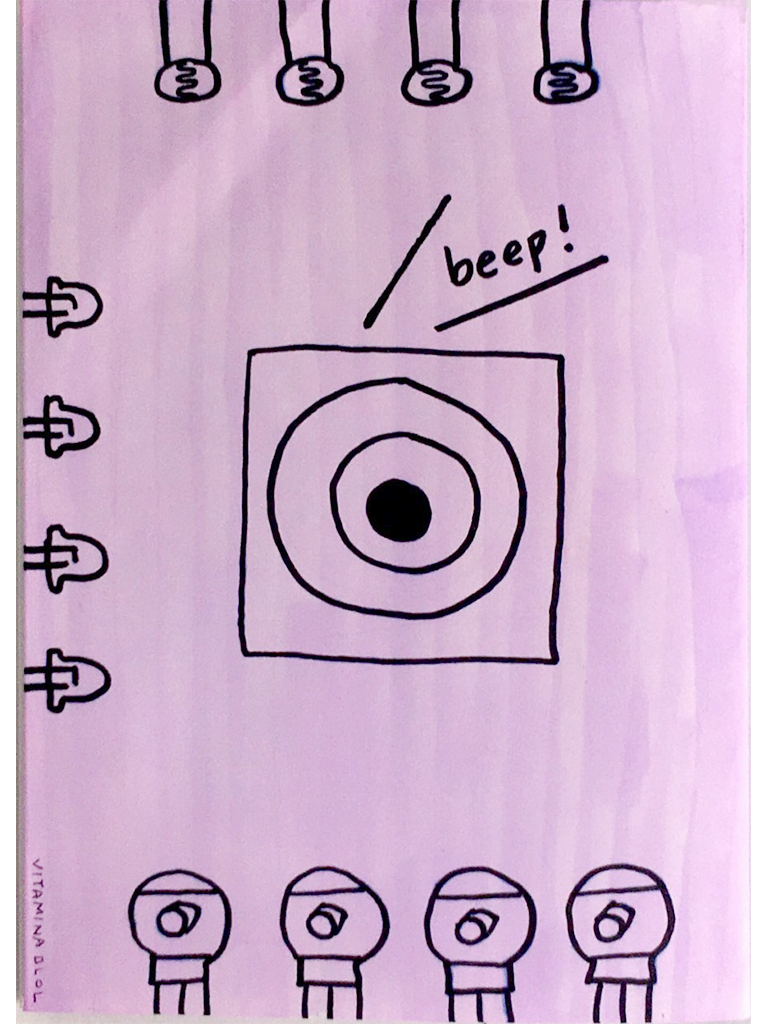 beep!
VITAMINA BLOL